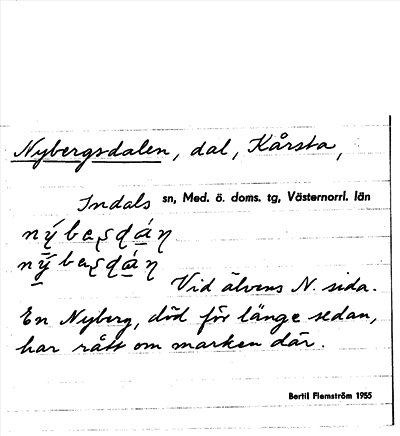 Nybergsdalen, dal, Kårsta,
Indals sn, Med. ö. doms. tg, Västernorrl. län
Vid älvens N. sida.
En Nyberg, död för länge sedan,
har rått om marken där.
Bertil Flemström 1955